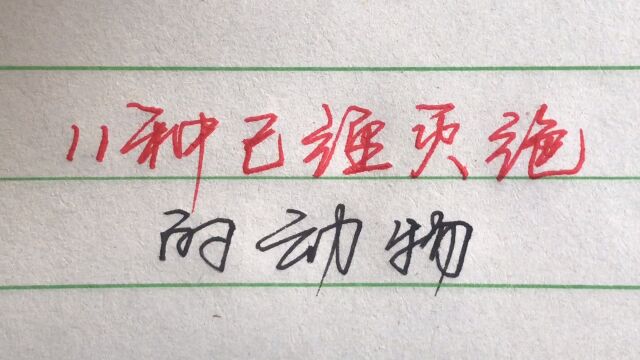 11种已经灭绝
的动物